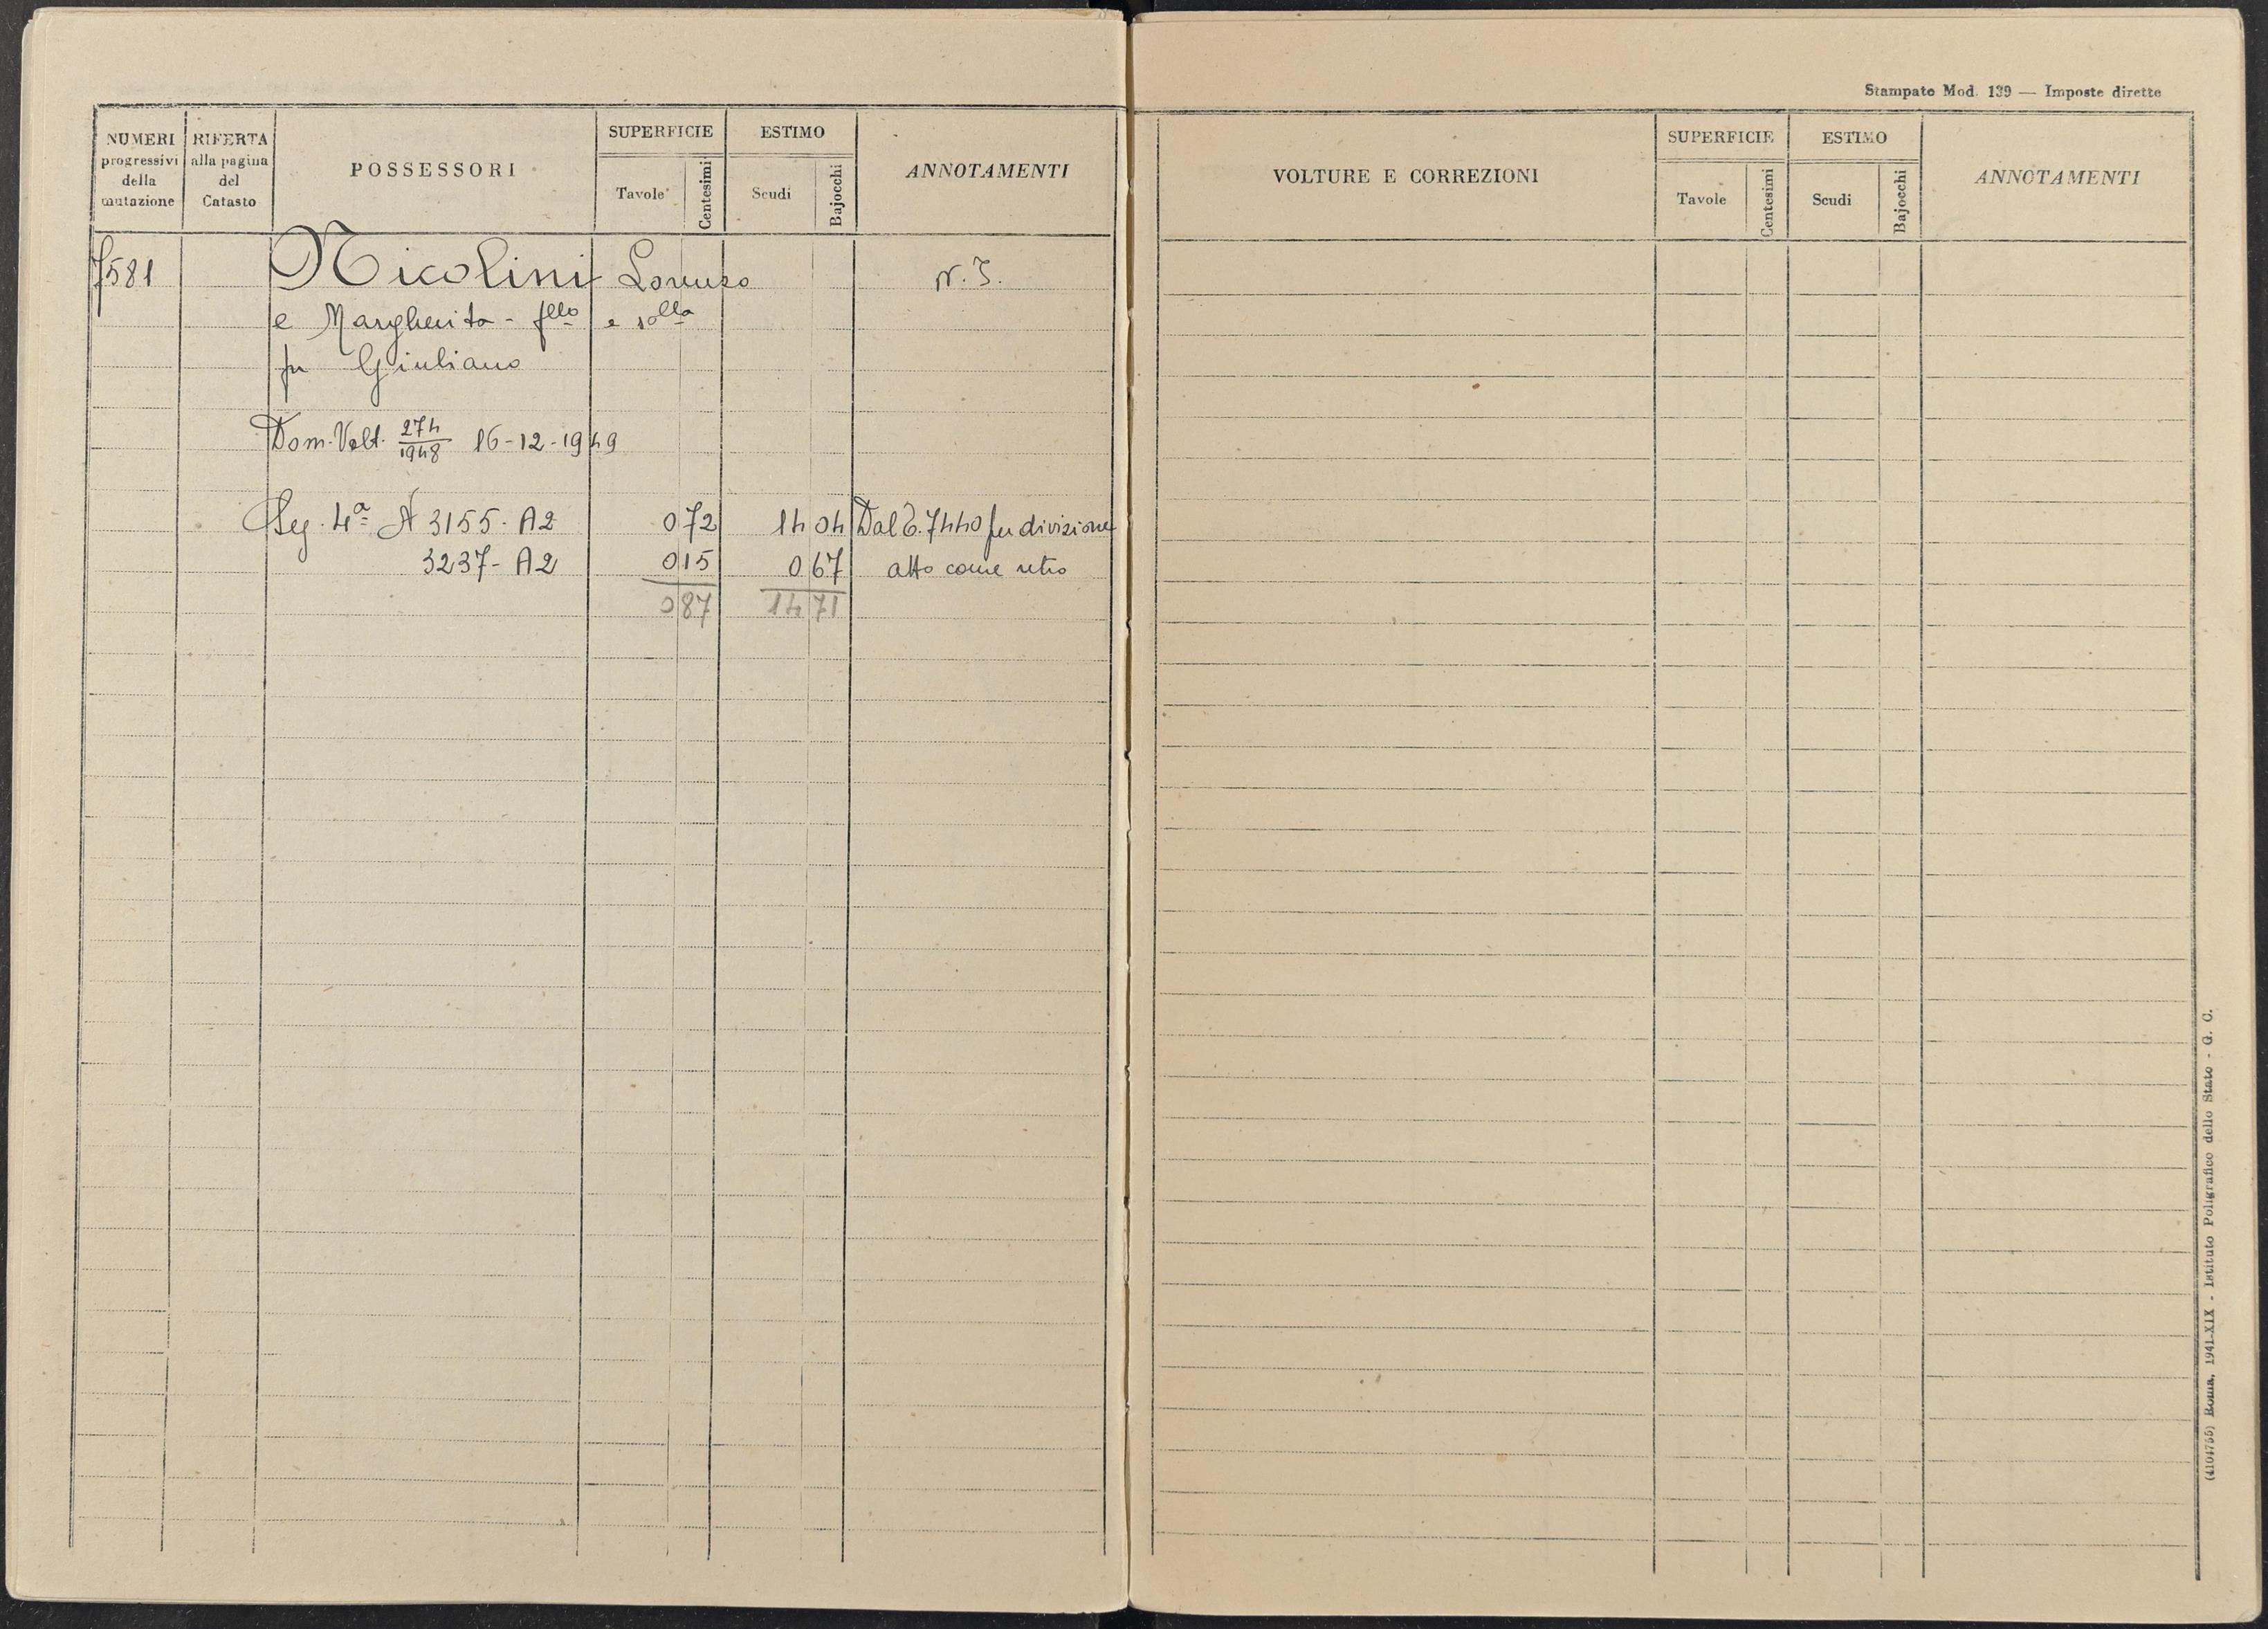 Stampato Mod. 139 — Imposte dirette
NUMERI progressivi della mutazione
RIFERTA alla pagina del Catasto
POSSESSORI
SUPERFICIE
Tavole
Centesimi
ESTIMO
Scudi
Bajocchi
ANNOTAMENTI
7581 Nicolini Lorenzo N. 3.
e Margherita - fllo e sollа
fu Giuliano
Dom. Volt. 274/1948 16-12-1949
Seg. 4a N 3155 - A2 0 72 14 04 Dal 7440 per divisione
3237 - A2 0 15 0 67 atto come retro
0 87 14 71
VOLTURE E CORREZIONI
SUPERFICIE
Tavole
Centesimi
ESTIMO
Scudi
Bajocchi
ANNOTAMENTI
(4104755) Roma, 1941-XIX - Istituto Poligrafico dello Stato - G. C.